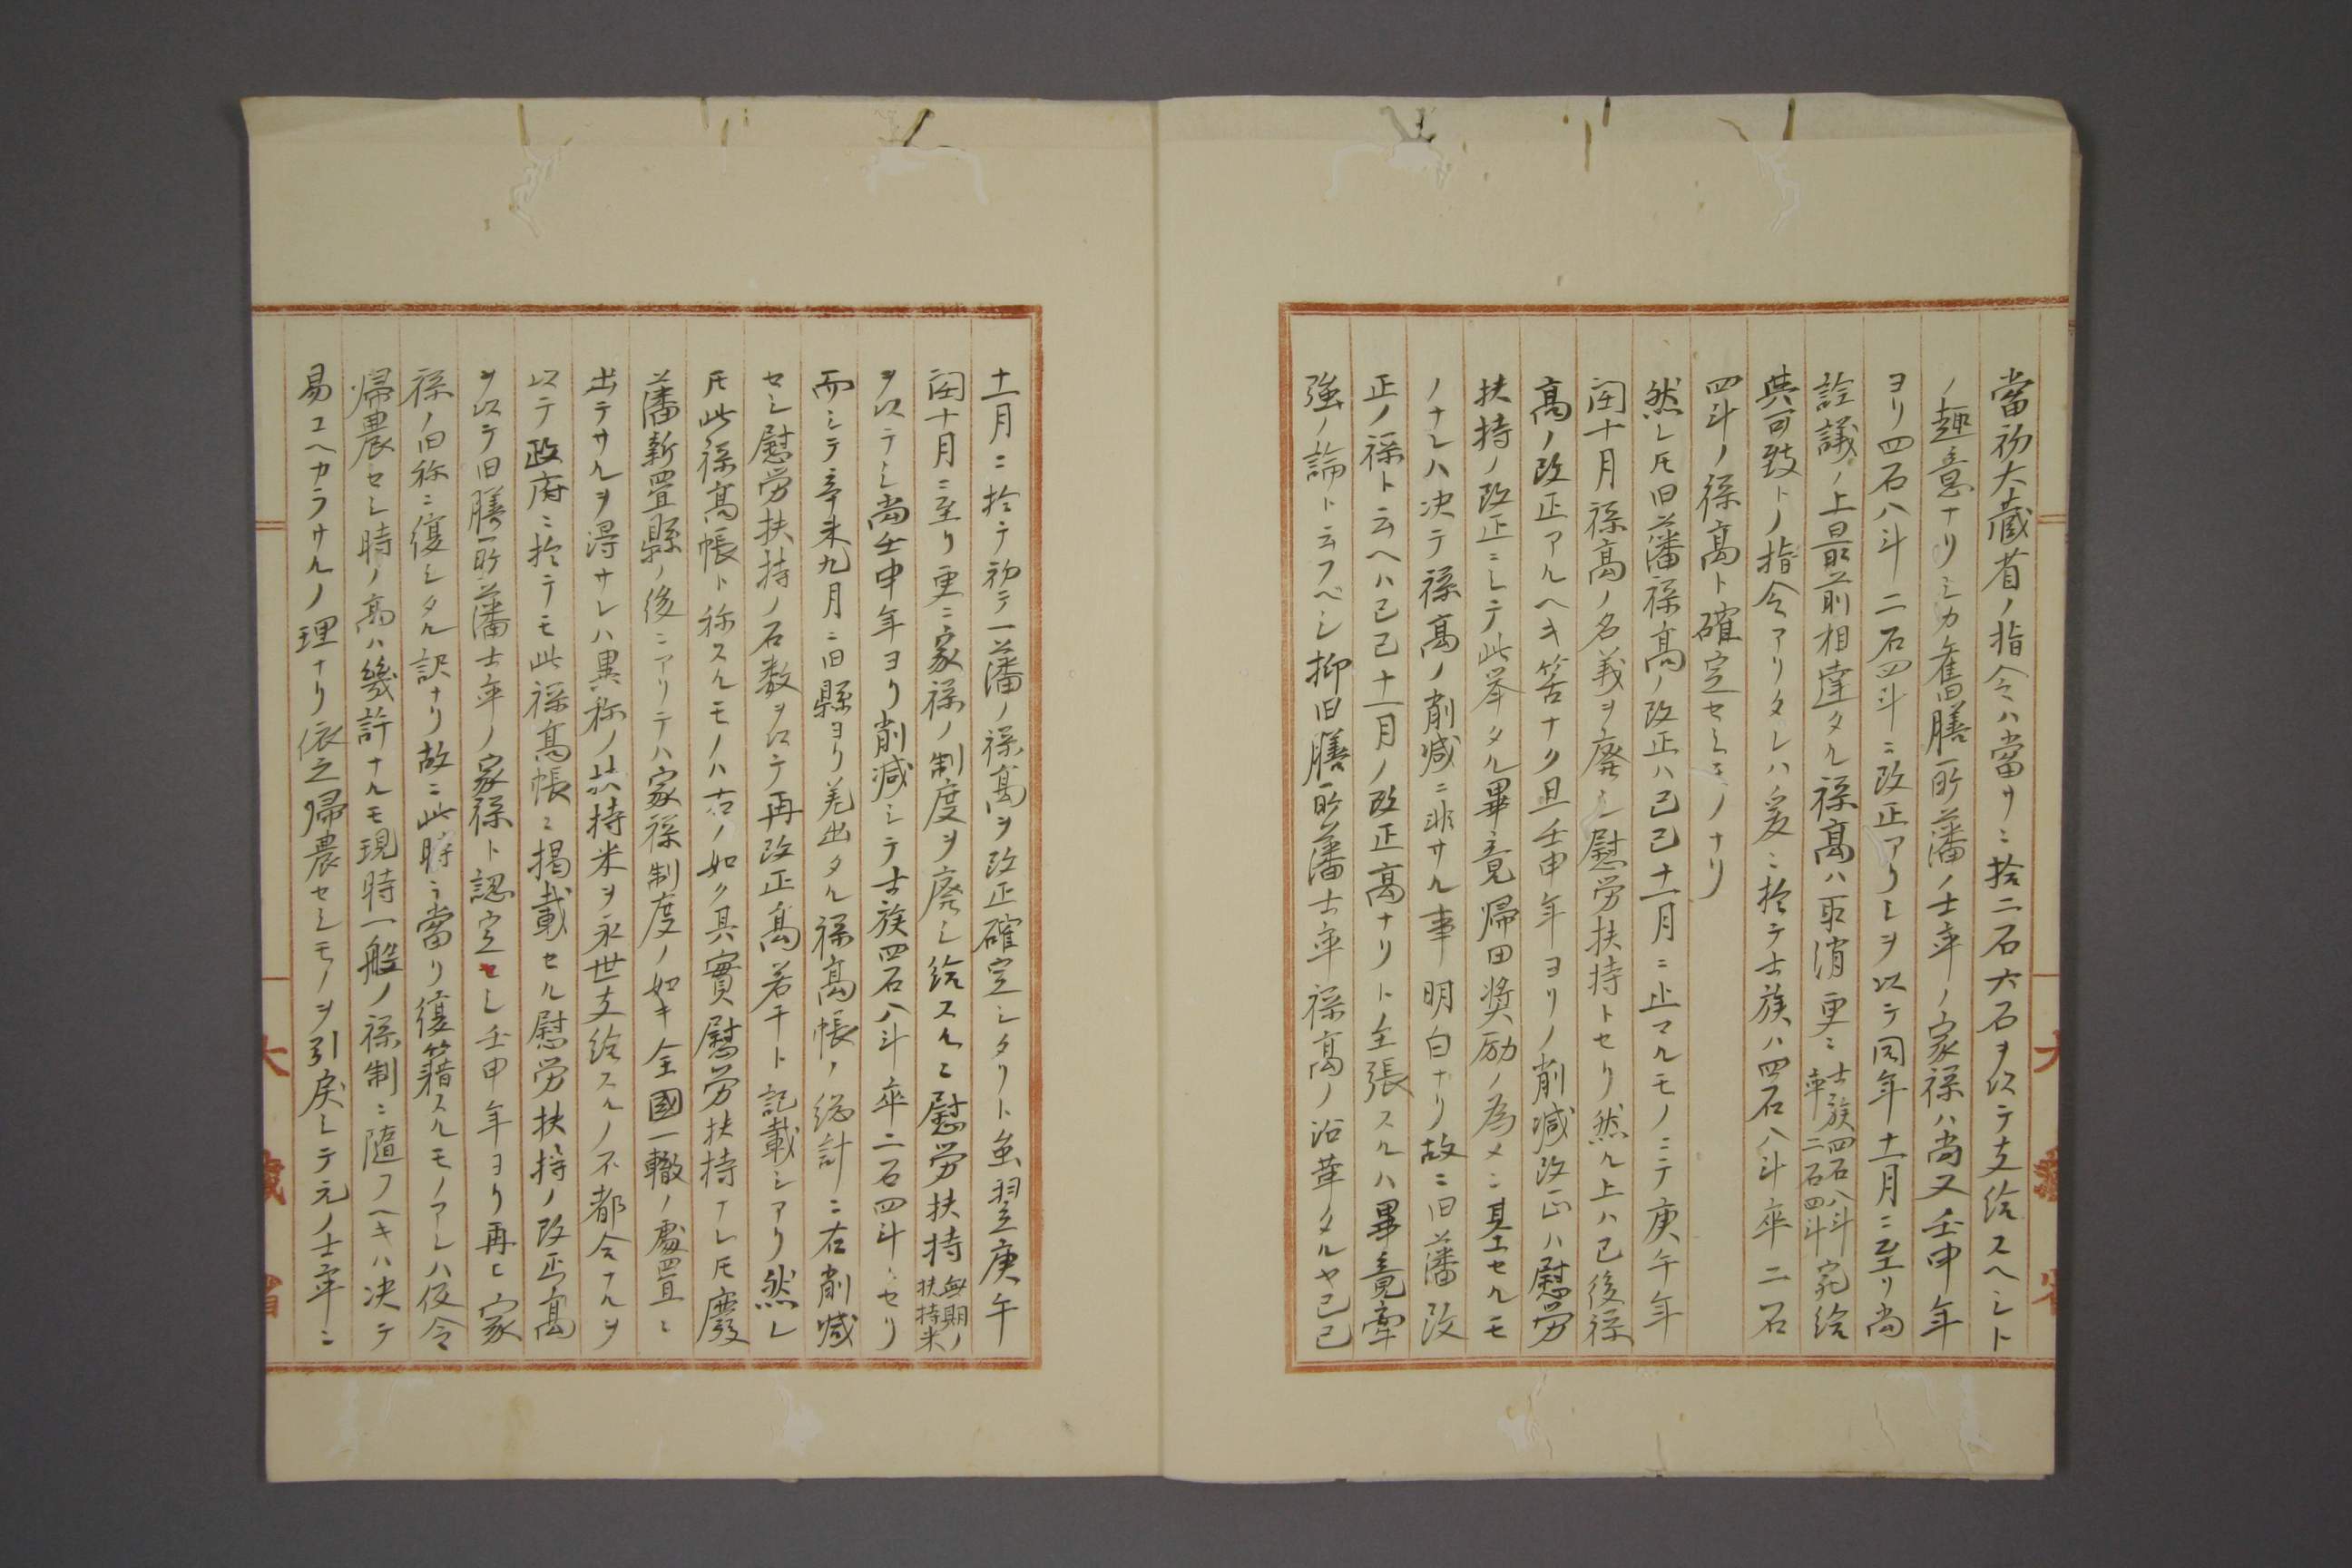 當初大蔵省ノ指令ハ當サニ拾二石六石ヲ以テ支給スヘシト
ノ趣意ナリシカ舊膳所藩ノ士卒ノ家禄ハ尚又壬申年
ヨリ四石八斗二石四斗ニ改正アリシヲ以テ同年十一月ニ至リ尚
詮議ノ上最前相達タル禄髙ハ取消更ニ士族四石八斗卒二石四斗宛給
與可致トノ指令アリタレハ爰ニ於テ士族ハ四石八斗卒二石
四斗ノ禄髙ト確定セシモノナリ
然レ𪜈旧藩禄髙ノ改正ハ己巳十一月ニ止マルモノニテ庚午年
閏十月禄髙ノ名義ヲ廃シ慰労扶持トセリ然ル上ハ已後禄
髙ノ改正アルヘキ筈ナク且壬申年ヨリノ削減改正ハ慰労
扶持ノ改正ニシテ此挙タル畢竟帰田奬励ノ為メニ基セルモ
ノナレハ决テ禄髙ノ削減ニ非サル事明白ナリ故ニ旧藩改
正ノ禄ト云ヘハ己巳十一月ノ改正髙ナリト主張スルハ畢竟牽
強ノ論ト云フベシ抑旧膳所藩士卒禄髙ノ沿革タルヤ己巳
十一月ニ於テ初テ一藩ノ禄髙ヲ改正確定シタリト虽翌庚午
閏十月ニ至リ更ニ家禄ノ制度ヲ廃シ給スルニ慰労扶持無期ノ扶持米
ヲ以テシ尚壬申年ヨリ削減シテ士族四石八斗卒二石四斗トセリ
而シテ辛未九月ニ旧縣ヨリ差出タル禄髙帳ノ総計ニ右削減
セシ慰労扶持ノ石数ヲ以テ再改正髙若干ト記載シアリ然レ
𪜈此禄髙帳ト称スルモノハ右ノ如ク其實慰労扶持ナレ𪜈廢
藩新置縣ノ後ニアリテハ家禄制度ノ如キ全國一轍ノ處置ニ
出テサルヲ得サレハ異称ノ扶持米ヲ永世支給スルノ不都合ナルヲ
以テ政府ニ於テモ此禄髙帳ニ掲載セル慰労扶持ノ改正髙
ヲ以テ旧膳所藩士卒ノ家禄ト認定セシ壬申年ヨリ再ヒ家
禄ノ旧称ニ復シタル訳ナリ故ニ此時ニ當リ復籍スルモノアレハ仮令
帰農セシ時ノ髙ハ幾許ナルモ現時一般ノ禄制ニ隨フヘキハ决テ
易ユヘカラサルノ理ナリ依之帰農セシモノヲ引戻シテ元ノ士卒ニ
大藏省
大藏省